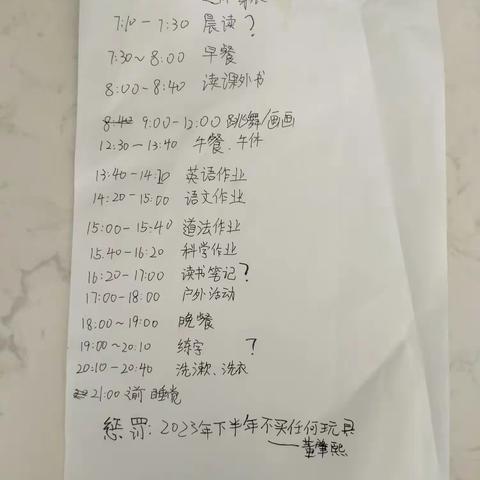 7:10-7:30 晨读?
7:30~8:00 早餐
8:00-8:40 读课外书
8:40 9:00-12:00 跳舞/画画
12:30-13:40 午餐、午休
13:40-14:10 英语作业
14:20-15:00 语文作业
15:00-15:40 道法作业
15.40-16:20 科学作业
16:20-17:00 读书笔记?
17:00-18:00 户外活动
18:00~19:00 晚餐
19:00~20:10 练字 ?
20:10-20:40 洗漱、洗衣
21:00前 睡觉
惩罚: 2023年下半年不买任何玩具
——董肇熙